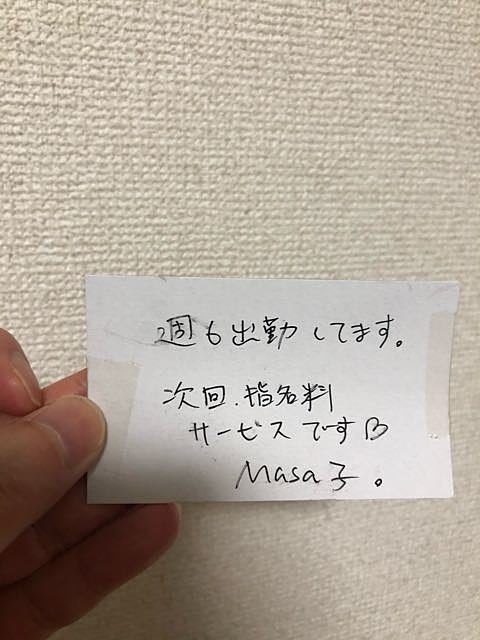 週も出勤してます。
次回.指名料
サービスです
Masa子。